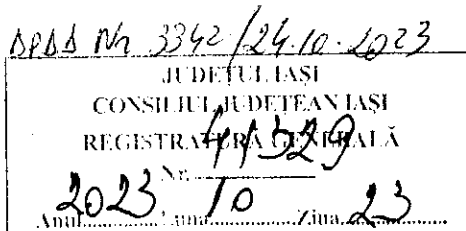 DPDD Nr 3342/24.10.2023
JUDEȚUL IAȘI
CONSILIUL JUDEȚEAN IAȘI
REGISTRATURA GENERALĂ
Nr. 41329
Anul 2023 Luna 10 Ziua 23